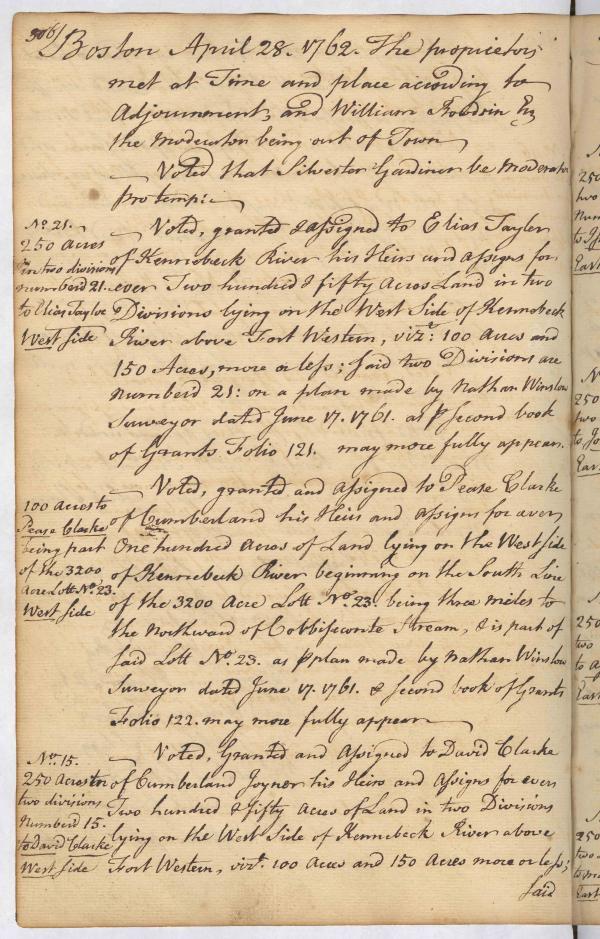 306/
Boston April 28. 1762. The proprietors
met at Time and place according to
Adjournment, and William Bowdoin Esq
the moderator being out of Town
Voted that Silvester Gardiner be moderator
protemp:re
No. 21.
250 Acres
in two divisions
numberd 21.
to Elias Taylor
West side
Voted, granted & assigned to Elias Tayler
of Kennebeck River his Heirs and assigns for
ever Two hundred & fifty Acres Land in two
Divisions lying on the West Side of Kennebeck
River above Fort Western, vizt: 100 Acres and
150 Acres, more or less; said two Divisions are
numberd 21: on a plan made by Nathan Winslow
Surveyor dated June 17. 1761. as p second book
of Grants Folio 121. may more fully appear.
100 acres to
Pease Clarke
being part
of the 3200
Acre Lott No. 23.
West side
Voted, granted and assigned to Pease Clarke
of Cumberland his Heirs and assigns for ever
One hundred Acres of Land lying on the West side
of Kennebeck River beginning on the South Line
of the 3200 Acre Lott No. 23. being three miles to
the northward of Cobbiseconte Stream, & is part of
said Lott No. 23. as p plan made by Nathan Winslow
Surveyor dated June 17. 1761. & second book of Grants
Folio 122. may more fully appear
No. 15.
250 Acres in
two divisions
numberd 15.
to David Clarke
West side
Voted, Granted and assigned to David Clarke
of Cumberland Joyner his Heirs and assigns for ever
Two hundred & fifty Acres of Land in two Divisions
lying on the West Side of Kennebeck River above
Fort Western, vizt. 100 Acres and 150 Acres more or less;
said